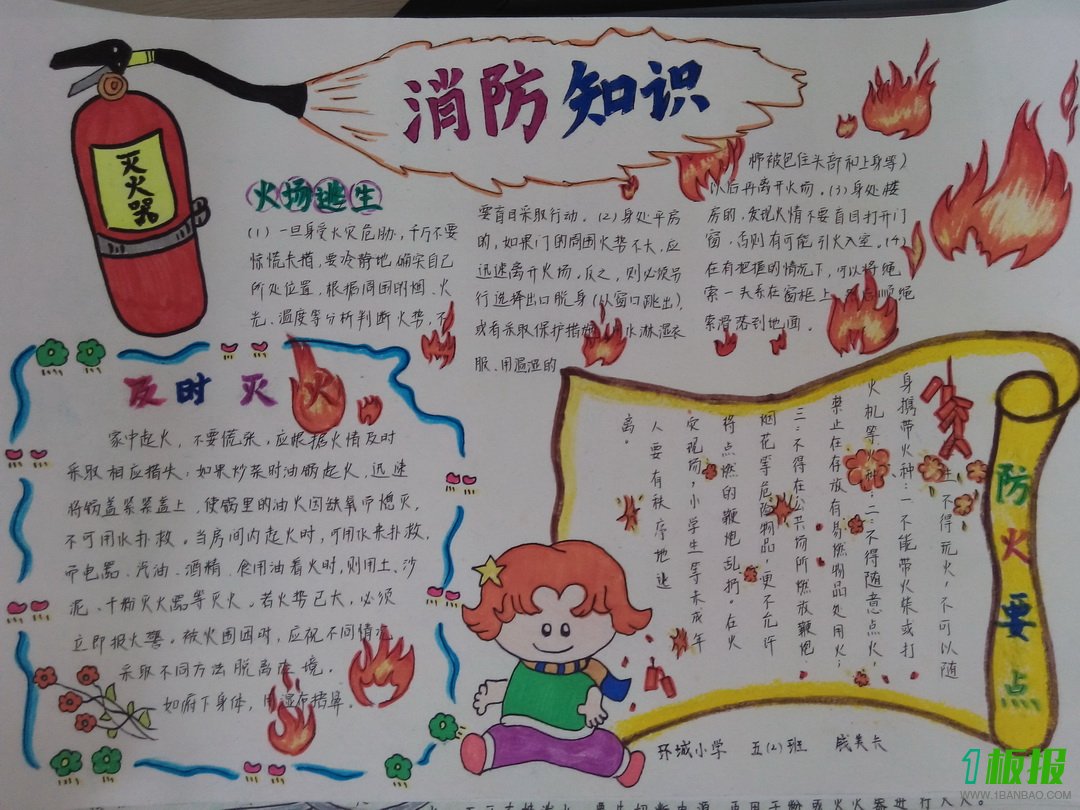 消防知识
灭火器
火场逃生
(1)一旦身受火灾危胁,千万不要
惊慌失措,要冷静地确实自己
所处位置,根据周围的烟、火
光、温度等分析判断火势,不
要盲目采取行动。(2)身处平房
的,如果门的周围火势不大,应
迅速离开火场。反之,则必须另
行选择出口脱身(从窗口跳出),
或有采取保护措施 水淋湿衣
服、用温湿的
棉被包住头部和上身等)
以后再离开火场。(3)身处楼
房的,发现火情不要盲目打开门
窗,否则有可能引火入室。(4)
在有把握的情况下,可以将绳
索一头系在窗框上 顺绳
索滑落到地面。
反时灭火
家中起火,不要慌张,应根据火情反时
采取相应措失:如果炒菜时油锅起火,迅速
将锅盖紧紧盖上,使锅里的油火因缺氧而熄灭,
不可用水扑救。当房间内起火时,可用水来扑救,
而电器、汽油、酒精、食用油着火时,则用土、沙
泥、干粉灭火器等灭火。若火势已大,必须
立即报火警。被火围困时,应视不同情况
采取不同方法脱离险境。
如府下身体,用湿布捂鼻。
防火要点
不得玩火,不可以随
身携带火种:一不能带火柴或打
火机等火种;二:不得随意点火,
禁止在存放有易燃物品处用火;
三:不得在公共场所燃放鞭炮、
烟花等危险物品,更不允许
将点燃的鞭炮乱扔。在火
灾现场,小学生等未成年
人要有秩序地逃
离。
环城小学 五(2)班
1板报
WWW.1BANBAO.COM